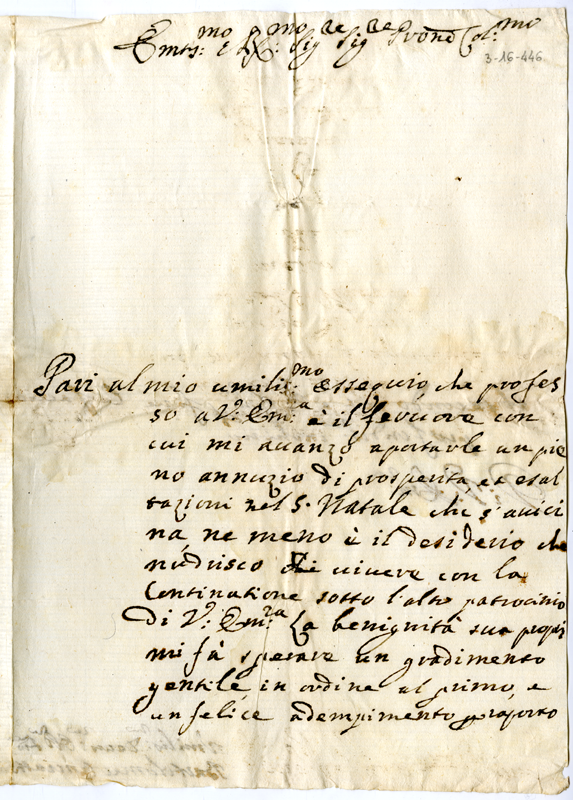 Em:mo e R:mo Sig:re Sig:re Pron Col:mo
3-16-446
Pari al mio umiliss:mo ossequio, che profes
so a V:a Em:a è il fervore con
cui mi avanzo a portarle un pie
no annuzio di prosperità, et esal
tazioni nel S. Natale che s'avici
na, ne meno è il desiderio che
nudrisco di vivere con la
Continuatione sotto l'alto patrocinio
di V:a Em:za La benignità sua propri
mi fà sperare un gradimento
gentile in ordine al primo, e
un felice adempimento